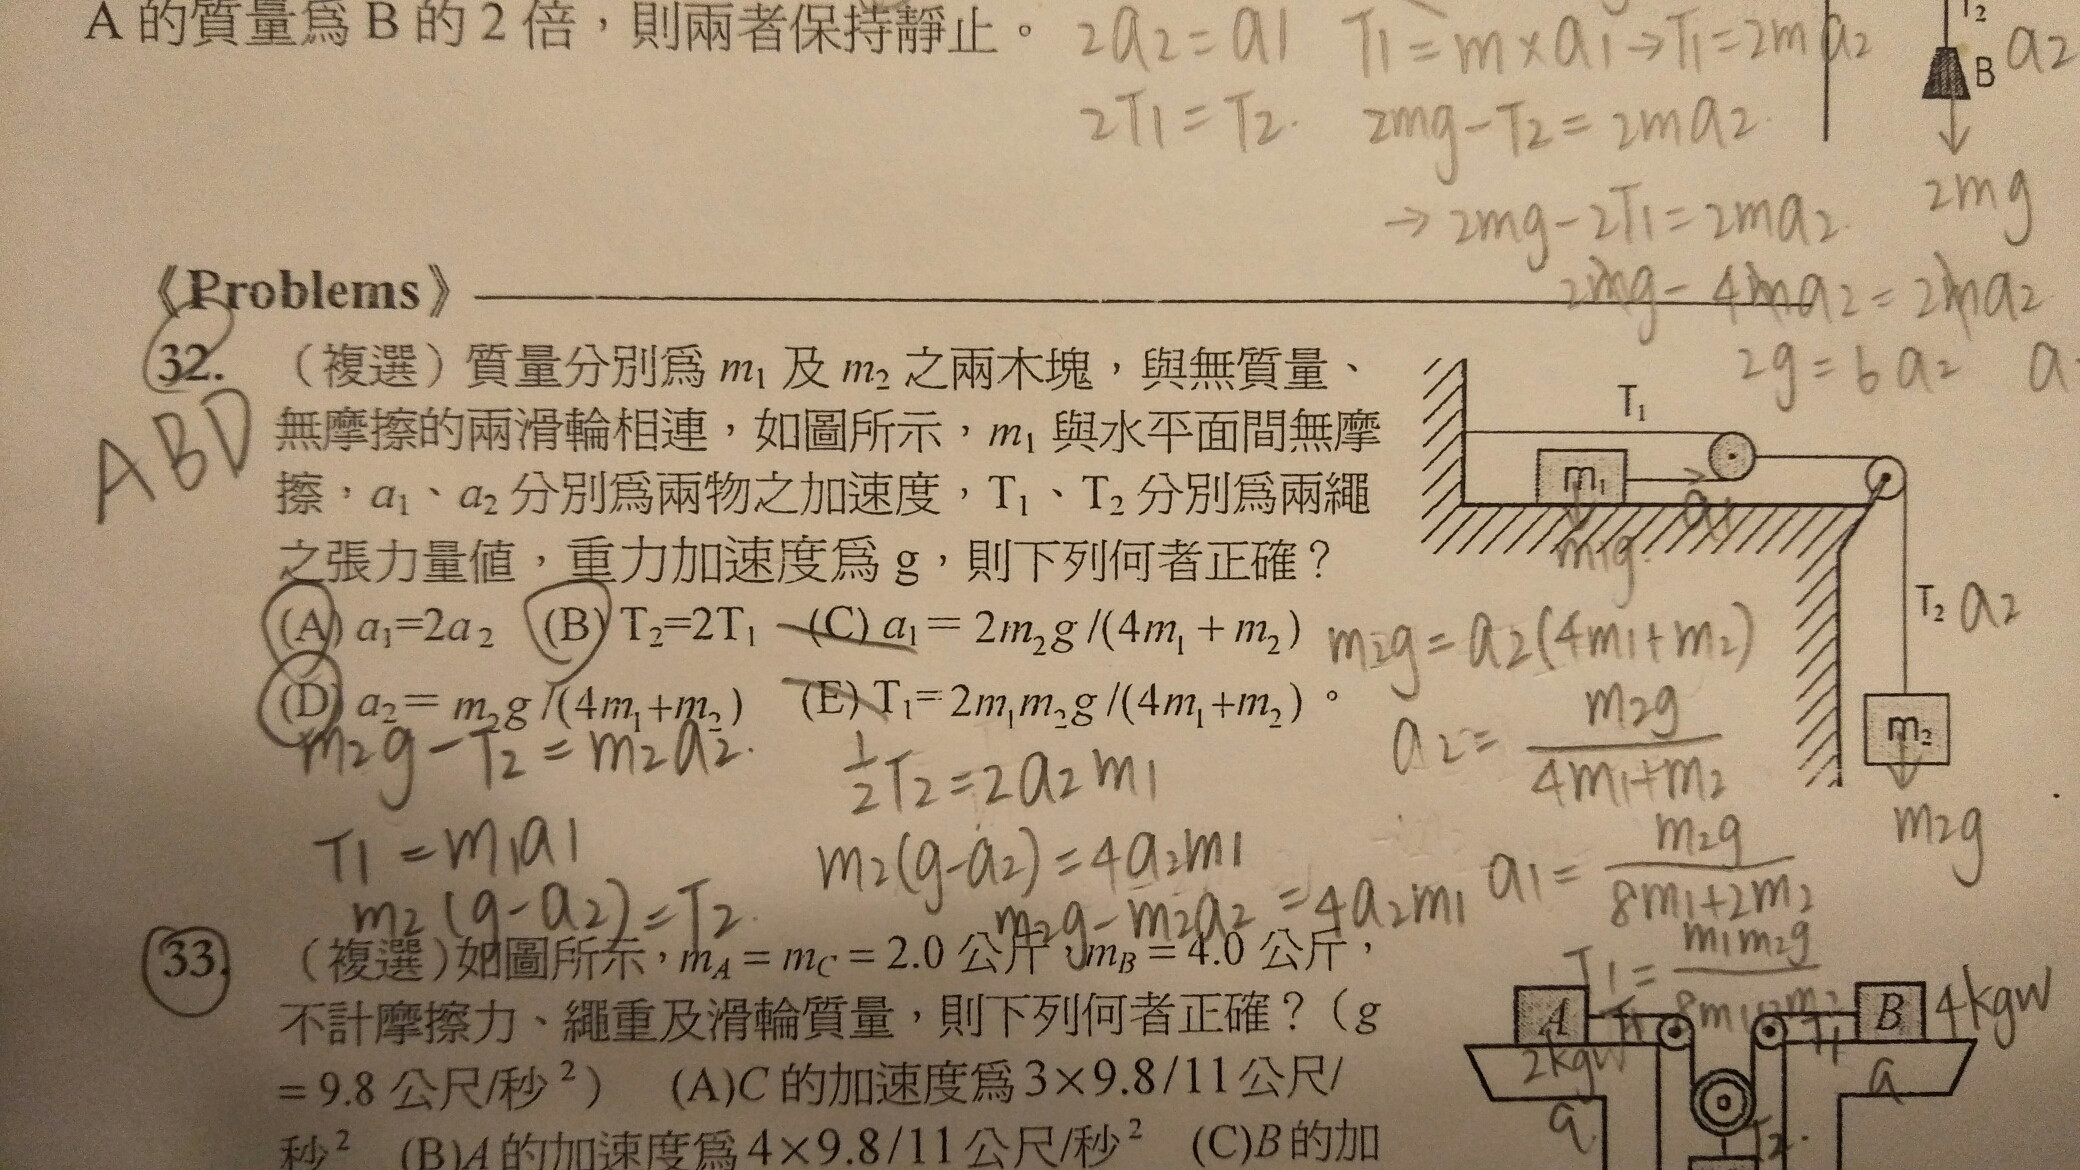 A 的質量爲 B 的 2 倍，則兩者保持靜止。
2a2=a1 T1=m×a1→T1=2ma2
2T1=T2. 2mg-T2=2ma2.
→2mg-2T1=2ma2.
2mg-4ma2=2ma2
2g=6a2 a
T2
B a2
2mg
《Problems》
32. （複選）質量分別爲 m₁ 及 m₂ 之兩木塊，與無質量、
無摩擦的兩滑輪相連，如圖所示，m₁ 與水平面間無摩
擦，a₁、a₂ 分別爲兩物之加速度，T₁、T₂ 分別爲兩繩
之張力量值，重力加速度爲 g，則下列何者正確？
(A) a₁=2a₂ (B) T₂=2T₁ (C) a₁= 2m₂g /(4m₁+m₂)
(D) a₂= m₂g /(4m₁+m₂) (E) T₁=2m₁m₂g /(4m₁+m₂)。
ABD
T₁
m₁
a1
m1g
T₂ a2
m₂
m2g
m2g-T2=m2a2.
T1=m1a1
m2(g-a2)=T2.
½T2=2a2m1
m2(g-a2)=4a2m1
m2g-m2a2=4a2m1
m2g=a2(4m1+m2)
a2=m2g/4m1+m2
a1=m2g/8m1+2m2
T1=m1m2g/8m1+2m2
33. （複選）如圖所示，mA = mC = 2.0 公斤，mB = 4.0 公斤，
不計摩擦力、繩重及滑輪質量，則下列何者正確？（g
= 9.8 公尺/秒²） (A)C 的加速度爲 3×9.8/11 公尺/
秒² (B)A 的加速度爲 4×9.8/11 公尺/秒² (C)B 的加
A T1 T1 B 4kgw
2kgw
a a
T2.